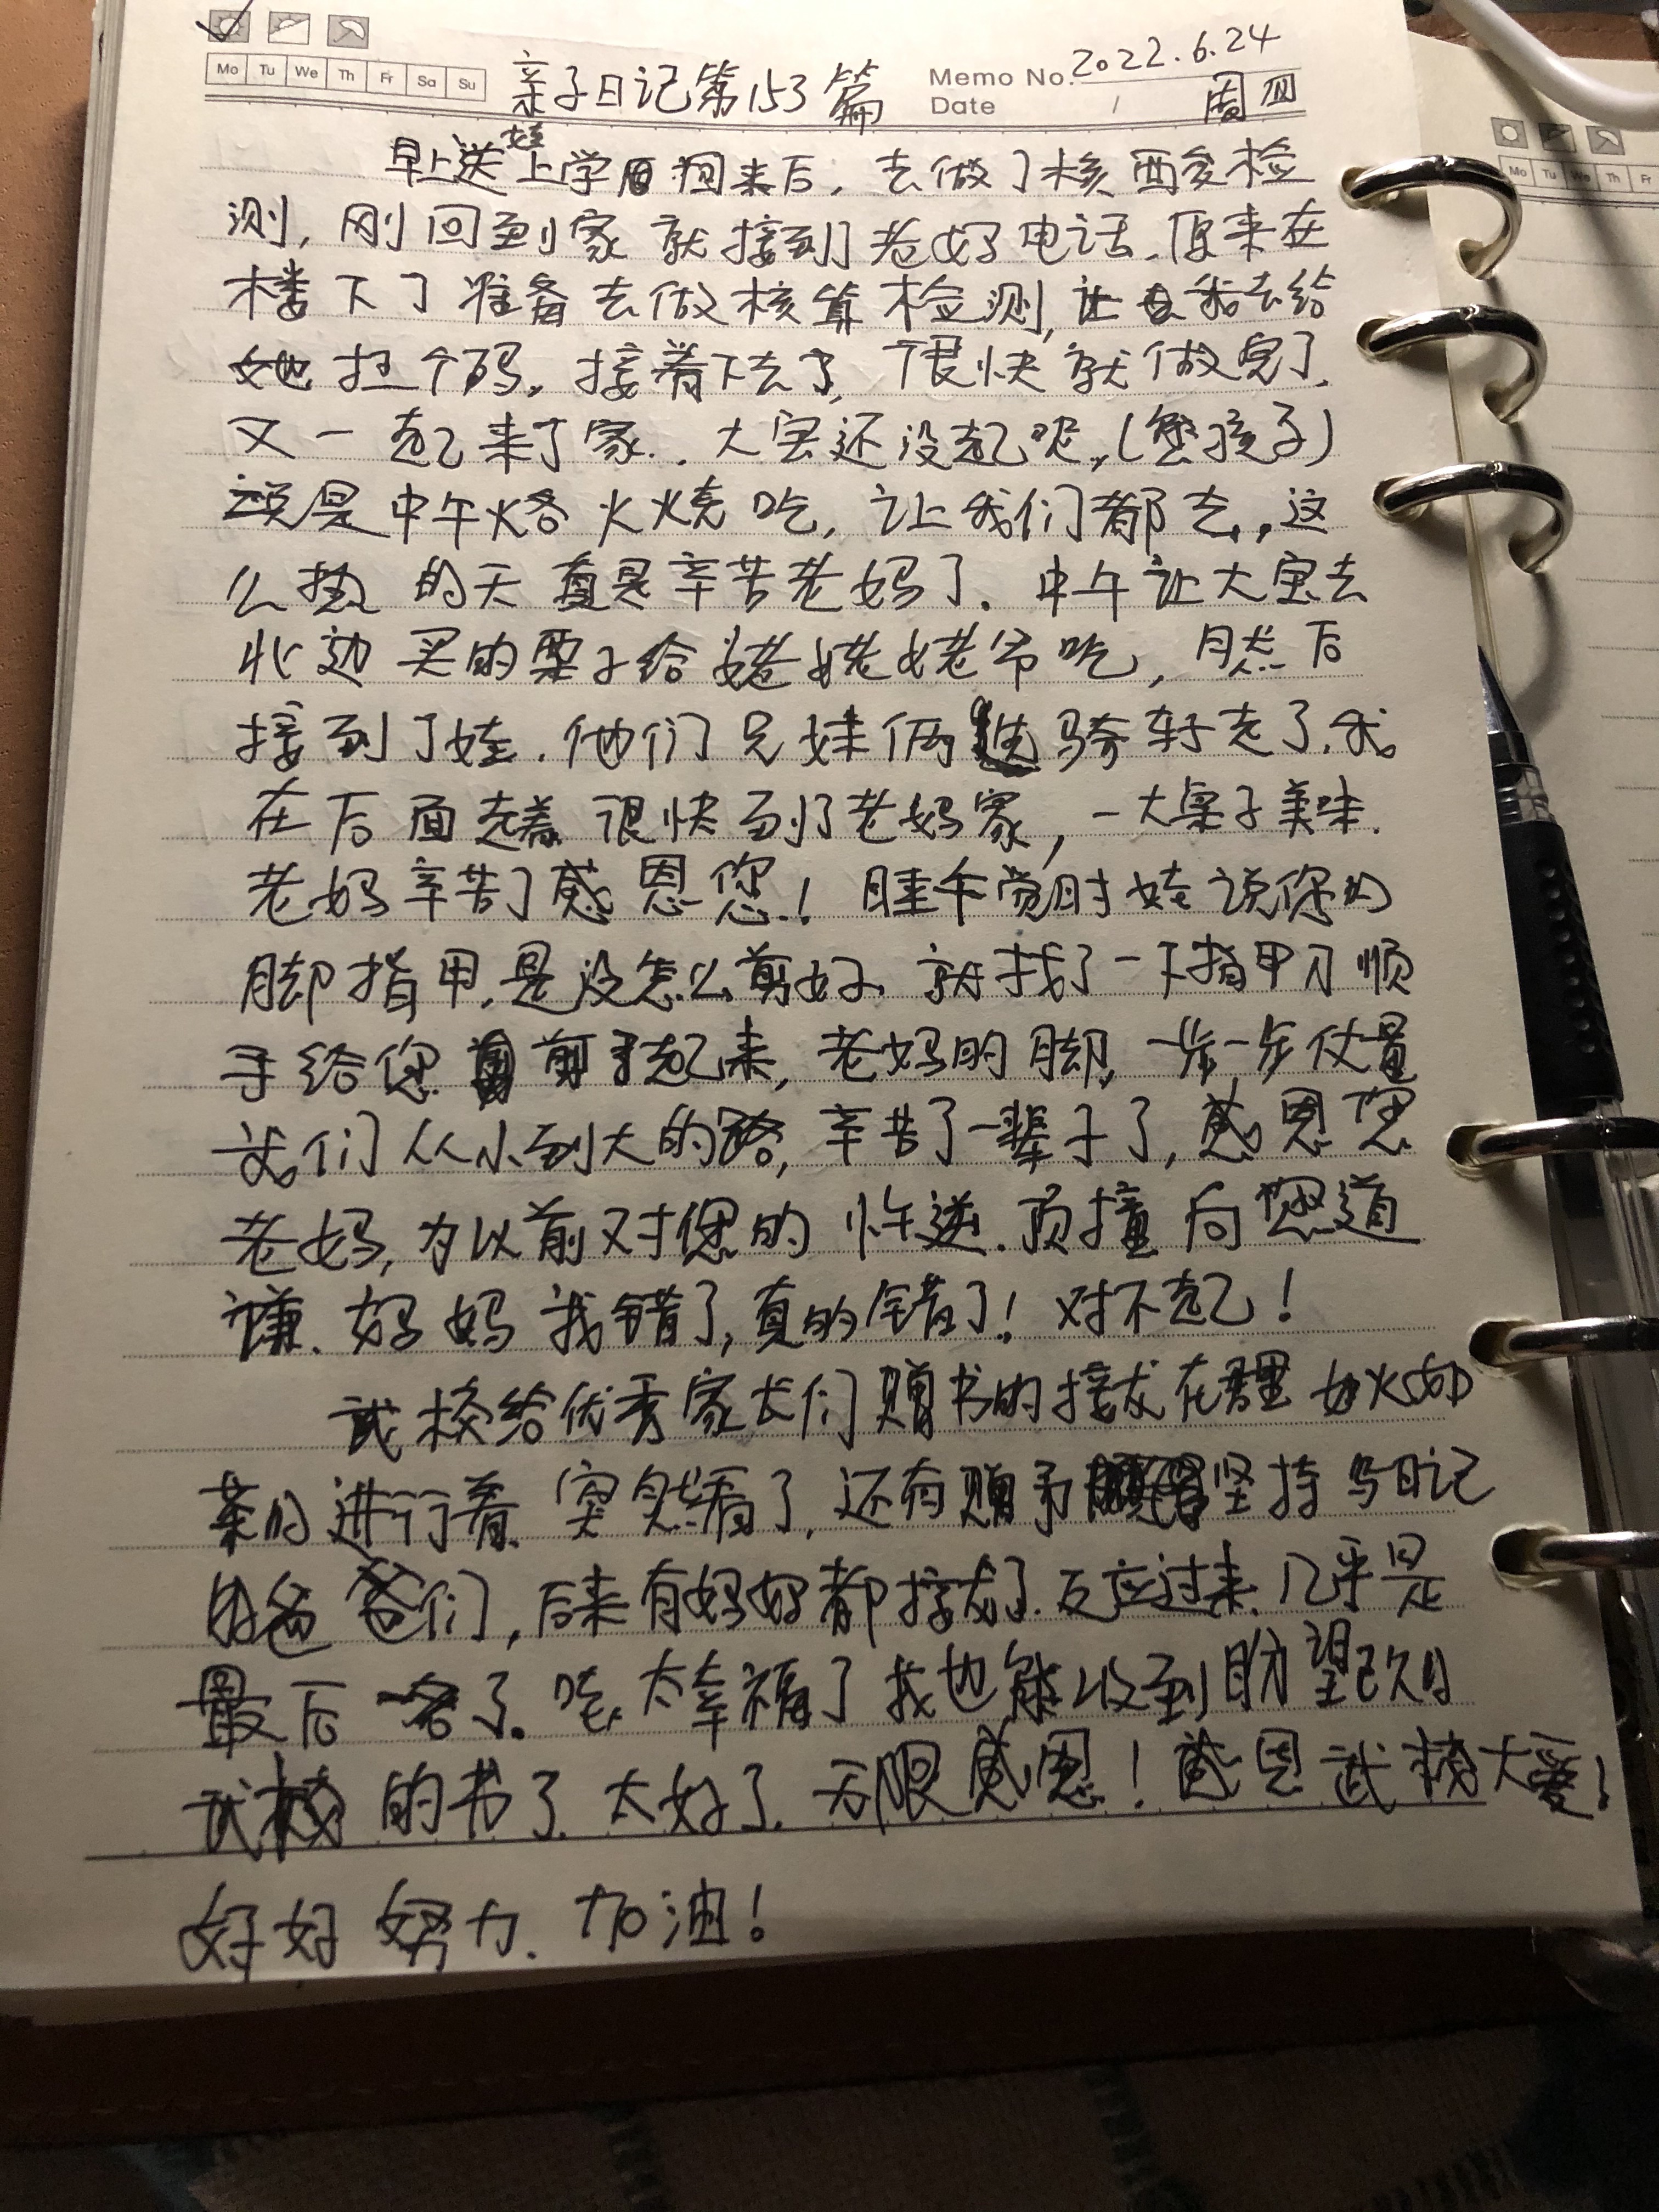 Mo Tu We Th Fr Sa Su
亲子日记第153篇
Memo No. 2022.6.24
Date / 周四
早上送娃上学回来后，去做了核酸检
测，刚回到家就接到老妈电话，原来在
楼下了准备去做核算检测，让我去给
她扫个码，接着下去了，很快就做完了，
又一起来了家．大宝还没起呢，（憨孩子）
说是中午烙火烧吃，让我们都去，这
么热的天真是辛苦老妈了．中午让大宝去
北边买的栗子给姥姥姥爷吃，然后
接到了娃．他们兄妹俩骑车走了，我
在后面走着很快到了老妈家，一大桌子美味．
老妈辛苦了感恩您！睡午觉时娃说你的
脚指甲，是没怎么剪好，就找了一下指甲刀顺
手给您剪了起来，老妈的脚，一步一步仗量
我们从小到大的路，辛苦了一辈子了，感恩您
老妈，为以前对您的忤逆．顶撞向您道
谦．妈妈我错了，真的错了！对不起！
武校给优秀家长们赠书的接龙在群里如火如
荼的进行着突然看了，还有赠予坚持写日记
的爸爸们，后来有妈妈都接龙了．反应过来，几乎是
最后一名了．哇太幸福了我也能收到盼望已久的
武校的书了．太好了．无限感恩！感恩武校大爱！
好好努力．加油！
Mo Tu We Th Fr